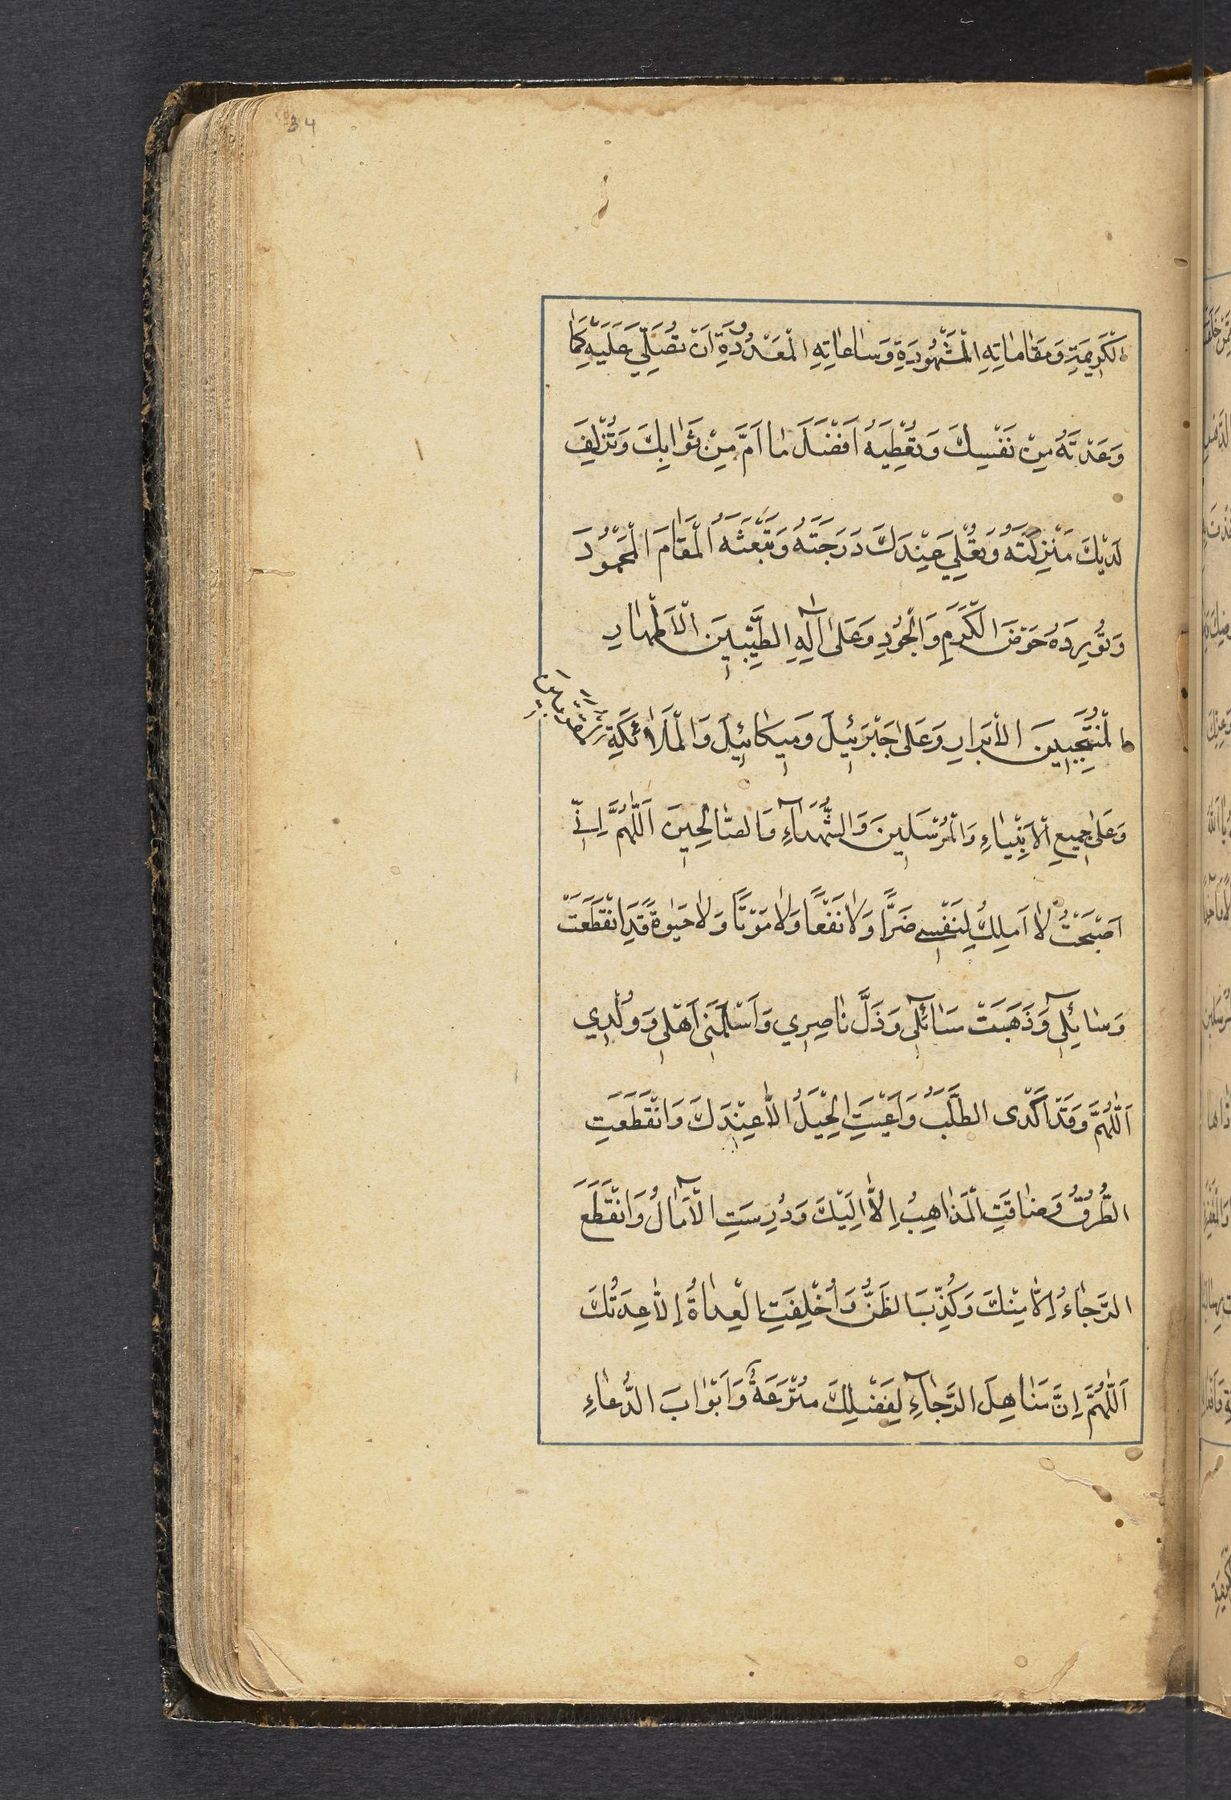 34
الْكَرِيمَةِ وَمَقَامَاتِهِ الْمَشْهُودَةِ وَسَاعَاتِهِ الْمَعْدُودَةِ اَنْ تُصَلِّيَ عَلَيْهِ كَمَا
وَعَدْتَهُ مِنْ نَفْسِكَ وَتُعْطِيَهُ اَفْضَلَ مَا اَمَّ مِنْ ثَوَابِكَ وَتُزْلِفَ
لَدَيْكَ مَنْزِلَتَهُ وَتُعْلِيَ عِنْدَكَ دَرَجَتَهُ وَتَبْعَثَهُ الْمَقَامَ الْمَحْمُودَ
وَتُورِدَهُ حَوْضَ الْكَرَمِ وَالْجُودِ وَعَلَى آلِهِ الطَّيِّبِينَ الْاَطْهَارِ
الْمُنْتَجَبِينَ الْاَبْرَارِ وَعَلَى جَبْرَئِيلَ وَمِيكَائِيلَ وَالْمَلَائِكَةِ
وَعَلَى جَمِيعِ الْاَنْبِيَاءِ وَالْمُرْسَلِينَ وَالشُّهَدَاءِ وَالصَّالِحِينَ اَللّٰهُمَّ اِنِّي
اَصْبَحْتُ لَا اَمْلِكُ لِنَفْسِي ضَرًّا وَلَا نَفْعًا وَلَا مَوْتًا وَلَا حَيٰوةً قَدِ انْقَطَعَتْ
وَسَائِلِي وَذَهَبَتْ مَسَائِلِي وَذَلَّ نَاصِرِي وَاَسْلَمَنِي اَهْلِي وَوُلْدِي
اَللّٰهُمَّ وَقَدْ اَكْدَى الطَّلَبُ وَاَعْيَتِ الْحِيَلُ اِلَّا عِنْدَكَ وَانْقَطَعَتِ
الطُّرُقُ وَضَاقَتِ الْمَذَاهِبُ اِلَّا اِلَيْكَ وَدُرِسَتِ الْآمَالُ وَانْقَطَعَ
الرَّجَاءُ اِلَّا مِنْكَ وَكُذِّبَ الظَّنُّ وَاُخْلِفَتِ الْعِدَاةُ اِلَّا عِدَتُكَ
اَللّٰهُمَّ اِنَّ مَنَاهِلَ الرَّجَاءِ لِفَضْلِكَ مُتْرَعَةٌ وَاَبْوَابَ الدُّعَاءِ